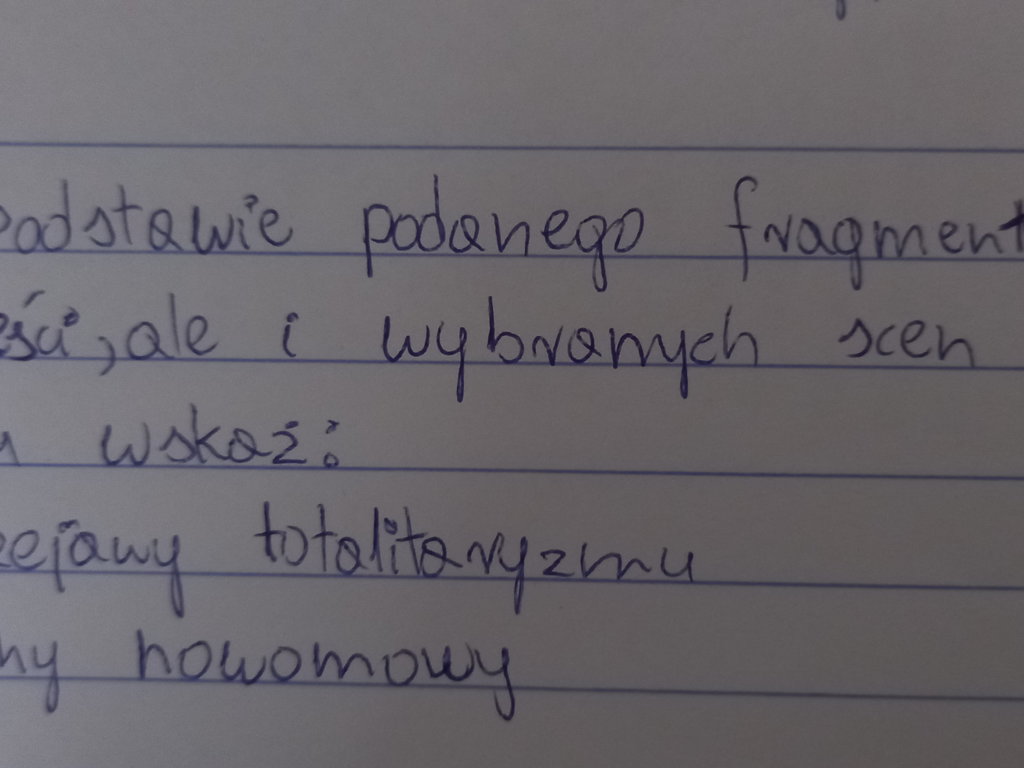 podstawie podanego fragment
eści, ale i wybranych scen
wskaż:
ejawy totalitaryzmu
hy nowomowy